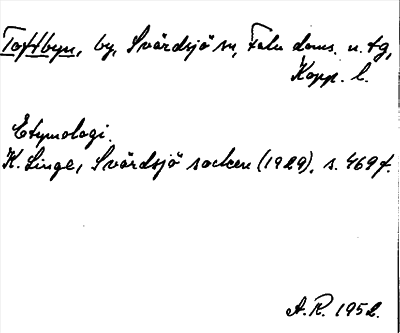 Toftbyn, by, Svärdsjö sn, Falu doms. n. tg,
Kopp. l.
Etymologi.
K. Linge, Svärdsjö socken (1929), s. 469 f.
A.R. 1952.